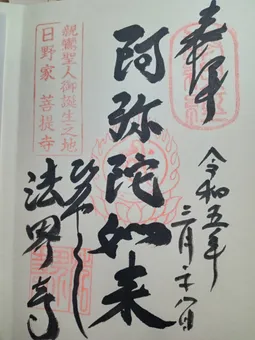 奉拝
令和五年
三月二十八日
阿弥陀如来
親鸞聖人御誕生之地
日野家 菩提寺
ひのやくし
法界寺